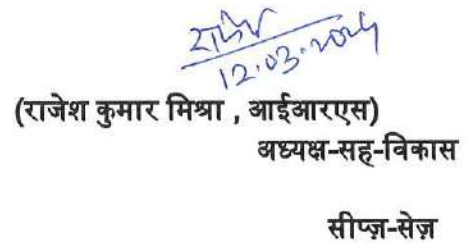 राजेश
12.03.2024
(राजेश कुमार मिश्रा , आईआरएस)
अध्यक्ष-सह-विकास
सीप्ज़-सेज़